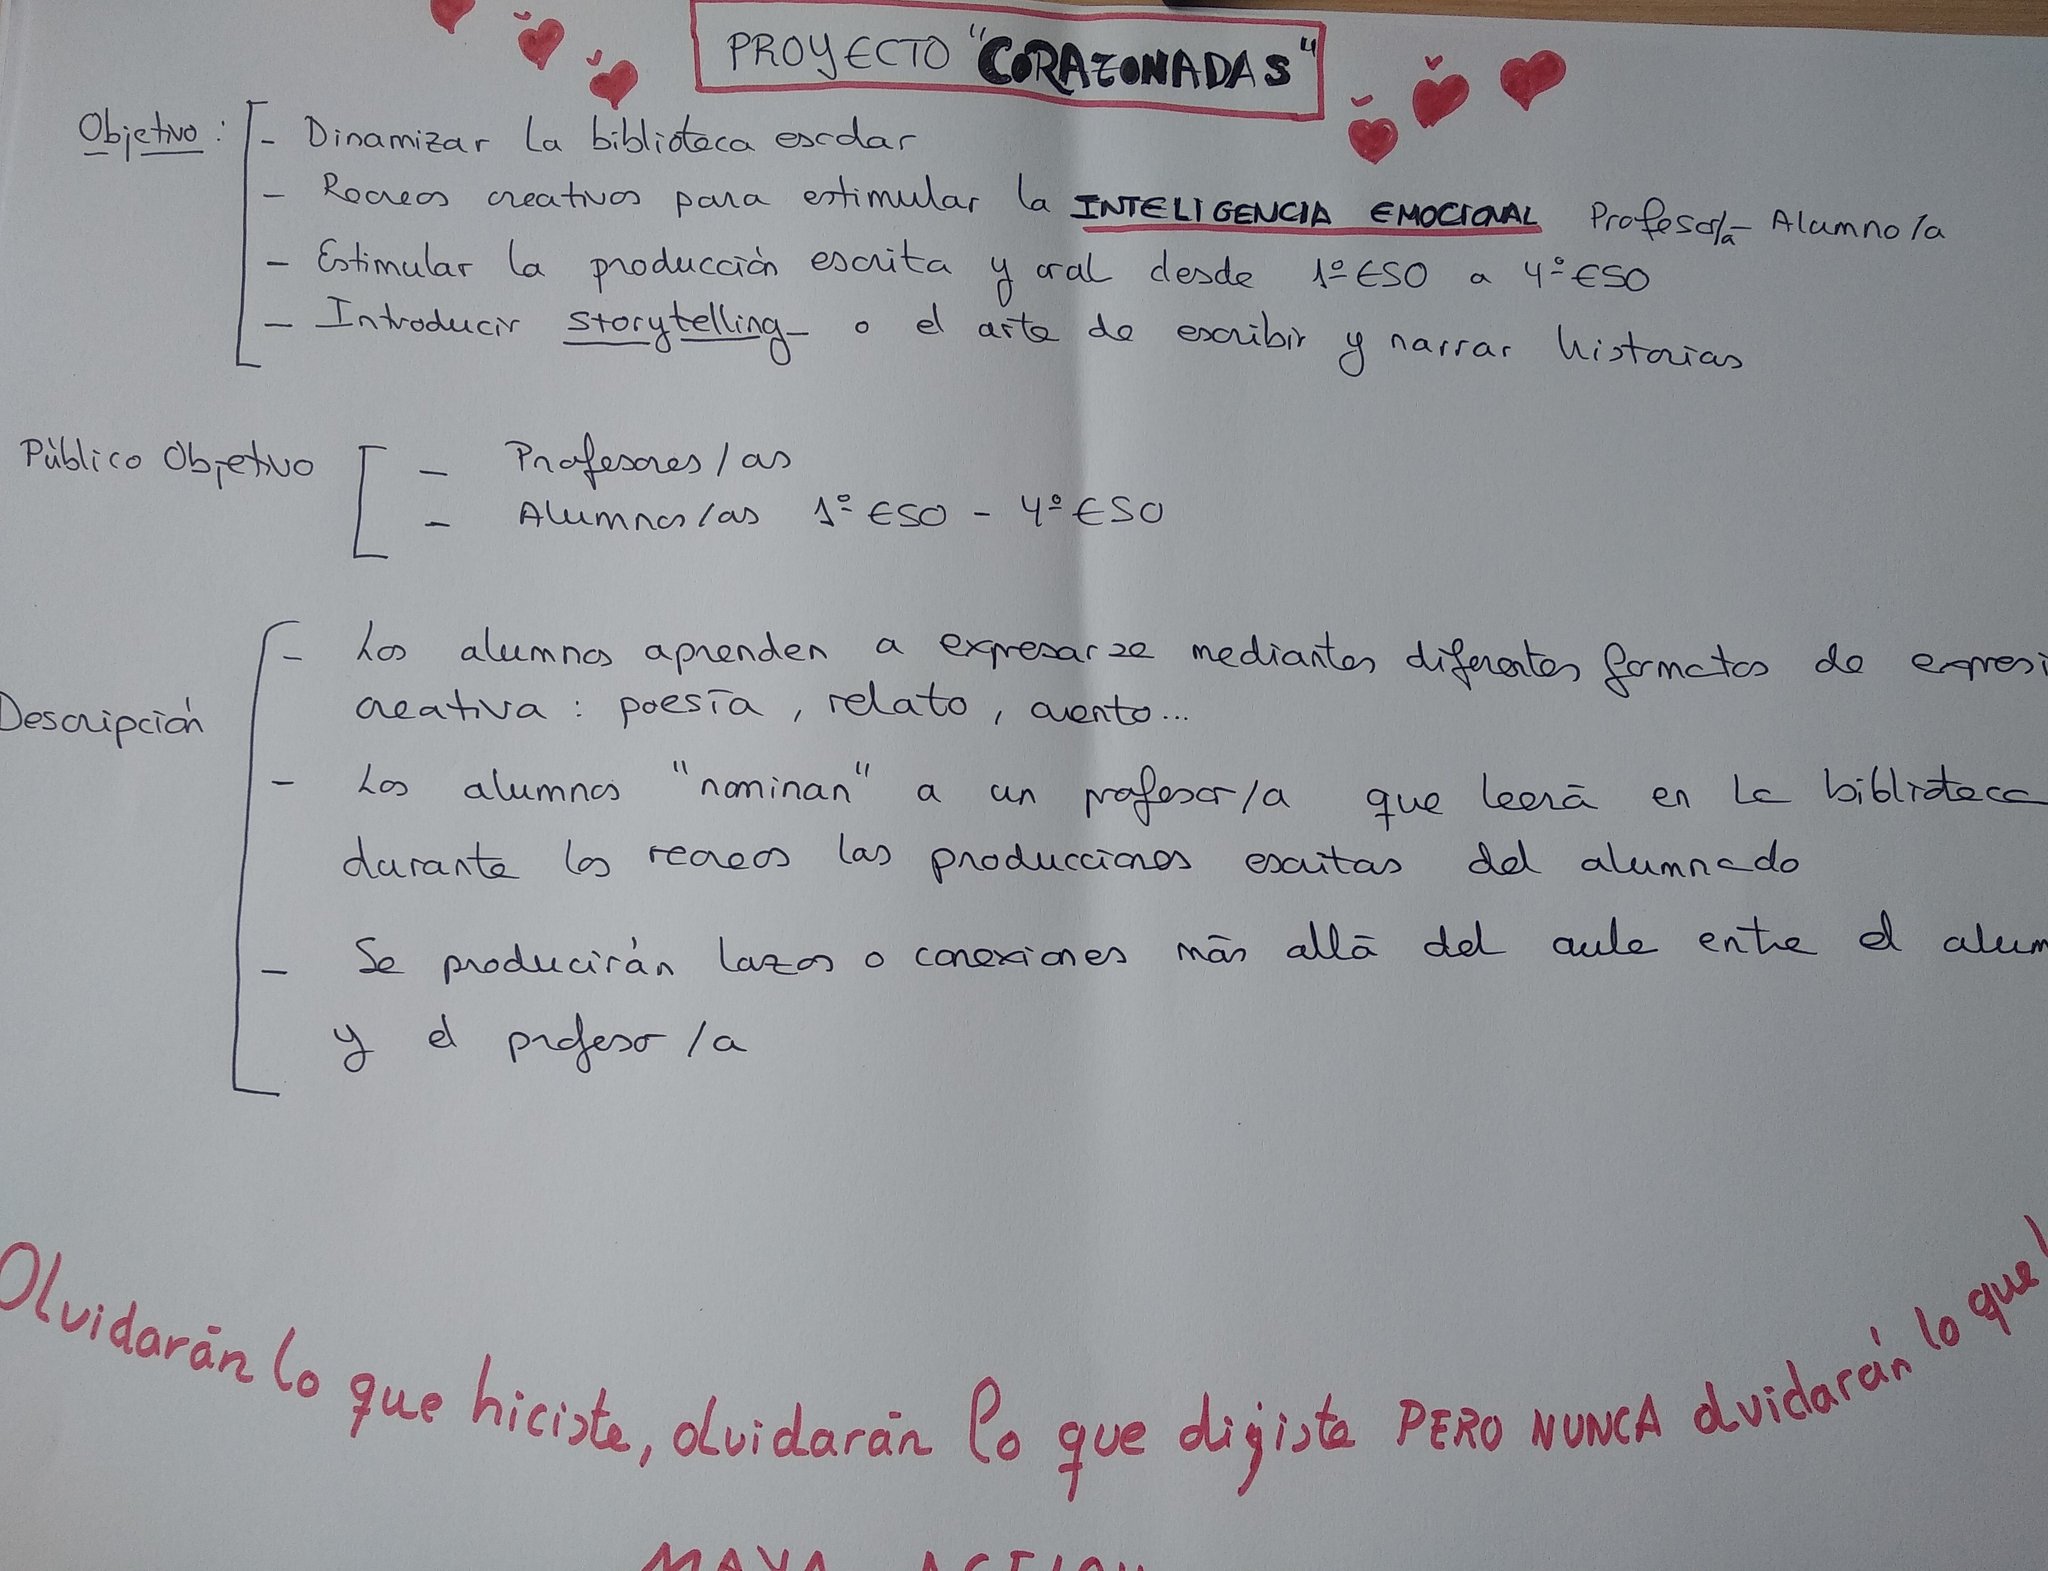 PROYECTO "CORAZONADAS"
Objetivo: - Dinamizar la biblioteca escolar
- Recreos creativos para estimular la INTELIGENCIA EMOCIONAL Profesor/a - Alumno/a
- Estimular la producción escrita y oral desde 1º ESO a 4º ESO
- Introducir storytelling o el arte de escribir y narrar historias
Público Objetivo - Profesores/as
- Alumnos/as 1º ESO - 4º ESO
- Los alumnos aprenden a expresarse mediantes diferentes formatos de expresi
Descripción creativa: poesía, relato, cuento...
- Los alumnos "nominan" a un profesor/a que leerá en la biblioteca
durante los recreos las producciones escritas del alumnado
- Se producirán lazos o conexiones más allá del aula entre el alum
y el profesor/a
Olvidarán lo que hiciste, olvidarán lo que dijiste PERO NUNCA olvidarán lo que
MAYA